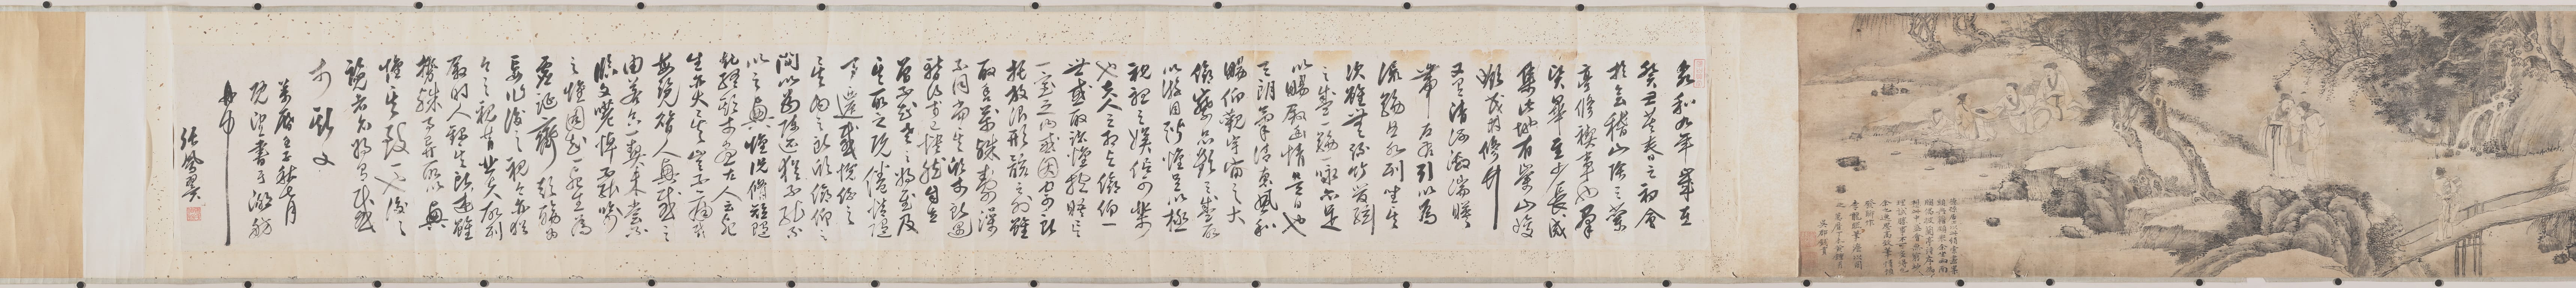 永和九年歲在
癸丑莫春之初會
於會稽山陰之蘭
亭脩禊事也群
賢畢至少長咸
集此地有崇山峻
領茂林脩竹
又有清流激湍暎
帶左右引以為
流觴曲水列坐其
次雖無絲竹管弦
之盛一觴一詠亦足
以暢敘幽情是日也
天朗氣清惠風和
暢仰觀宇宙之大
俯察品類之盛所
以遊目騁懷足以極
視聽之娛信可樂
也夫人之相與俯仰一
世或取諸懷抱晤言
一室之內或因寄所
託放浪形骸之外雖
取舍萬殊靜躁
不同當其欣於所遇
暫得於己快然自足
曾不知老之將至及
其所之既倦情隨
事遷感慨係之
矣向之所欣俛仰之
閒以為陳迹猶不能不
以之興懷況脩短隨
化終期於盡古人云死
生亦大矣豈不痛哉
每覽昔人興感之
由若合一契未嘗不
臨文嗟悼不能喻
之懷固知一死生為
虛誕齊彭殤為
妄作後之視今亦猶
今之視昔悲夫故列
敘時人錄其所述雖
世殊事異所以興
懷其致一也後之
覽者亦將有感
於斯文
萬曆壬子秋七月
既望書于
舟中
張鳳翼
吳郡錢貢